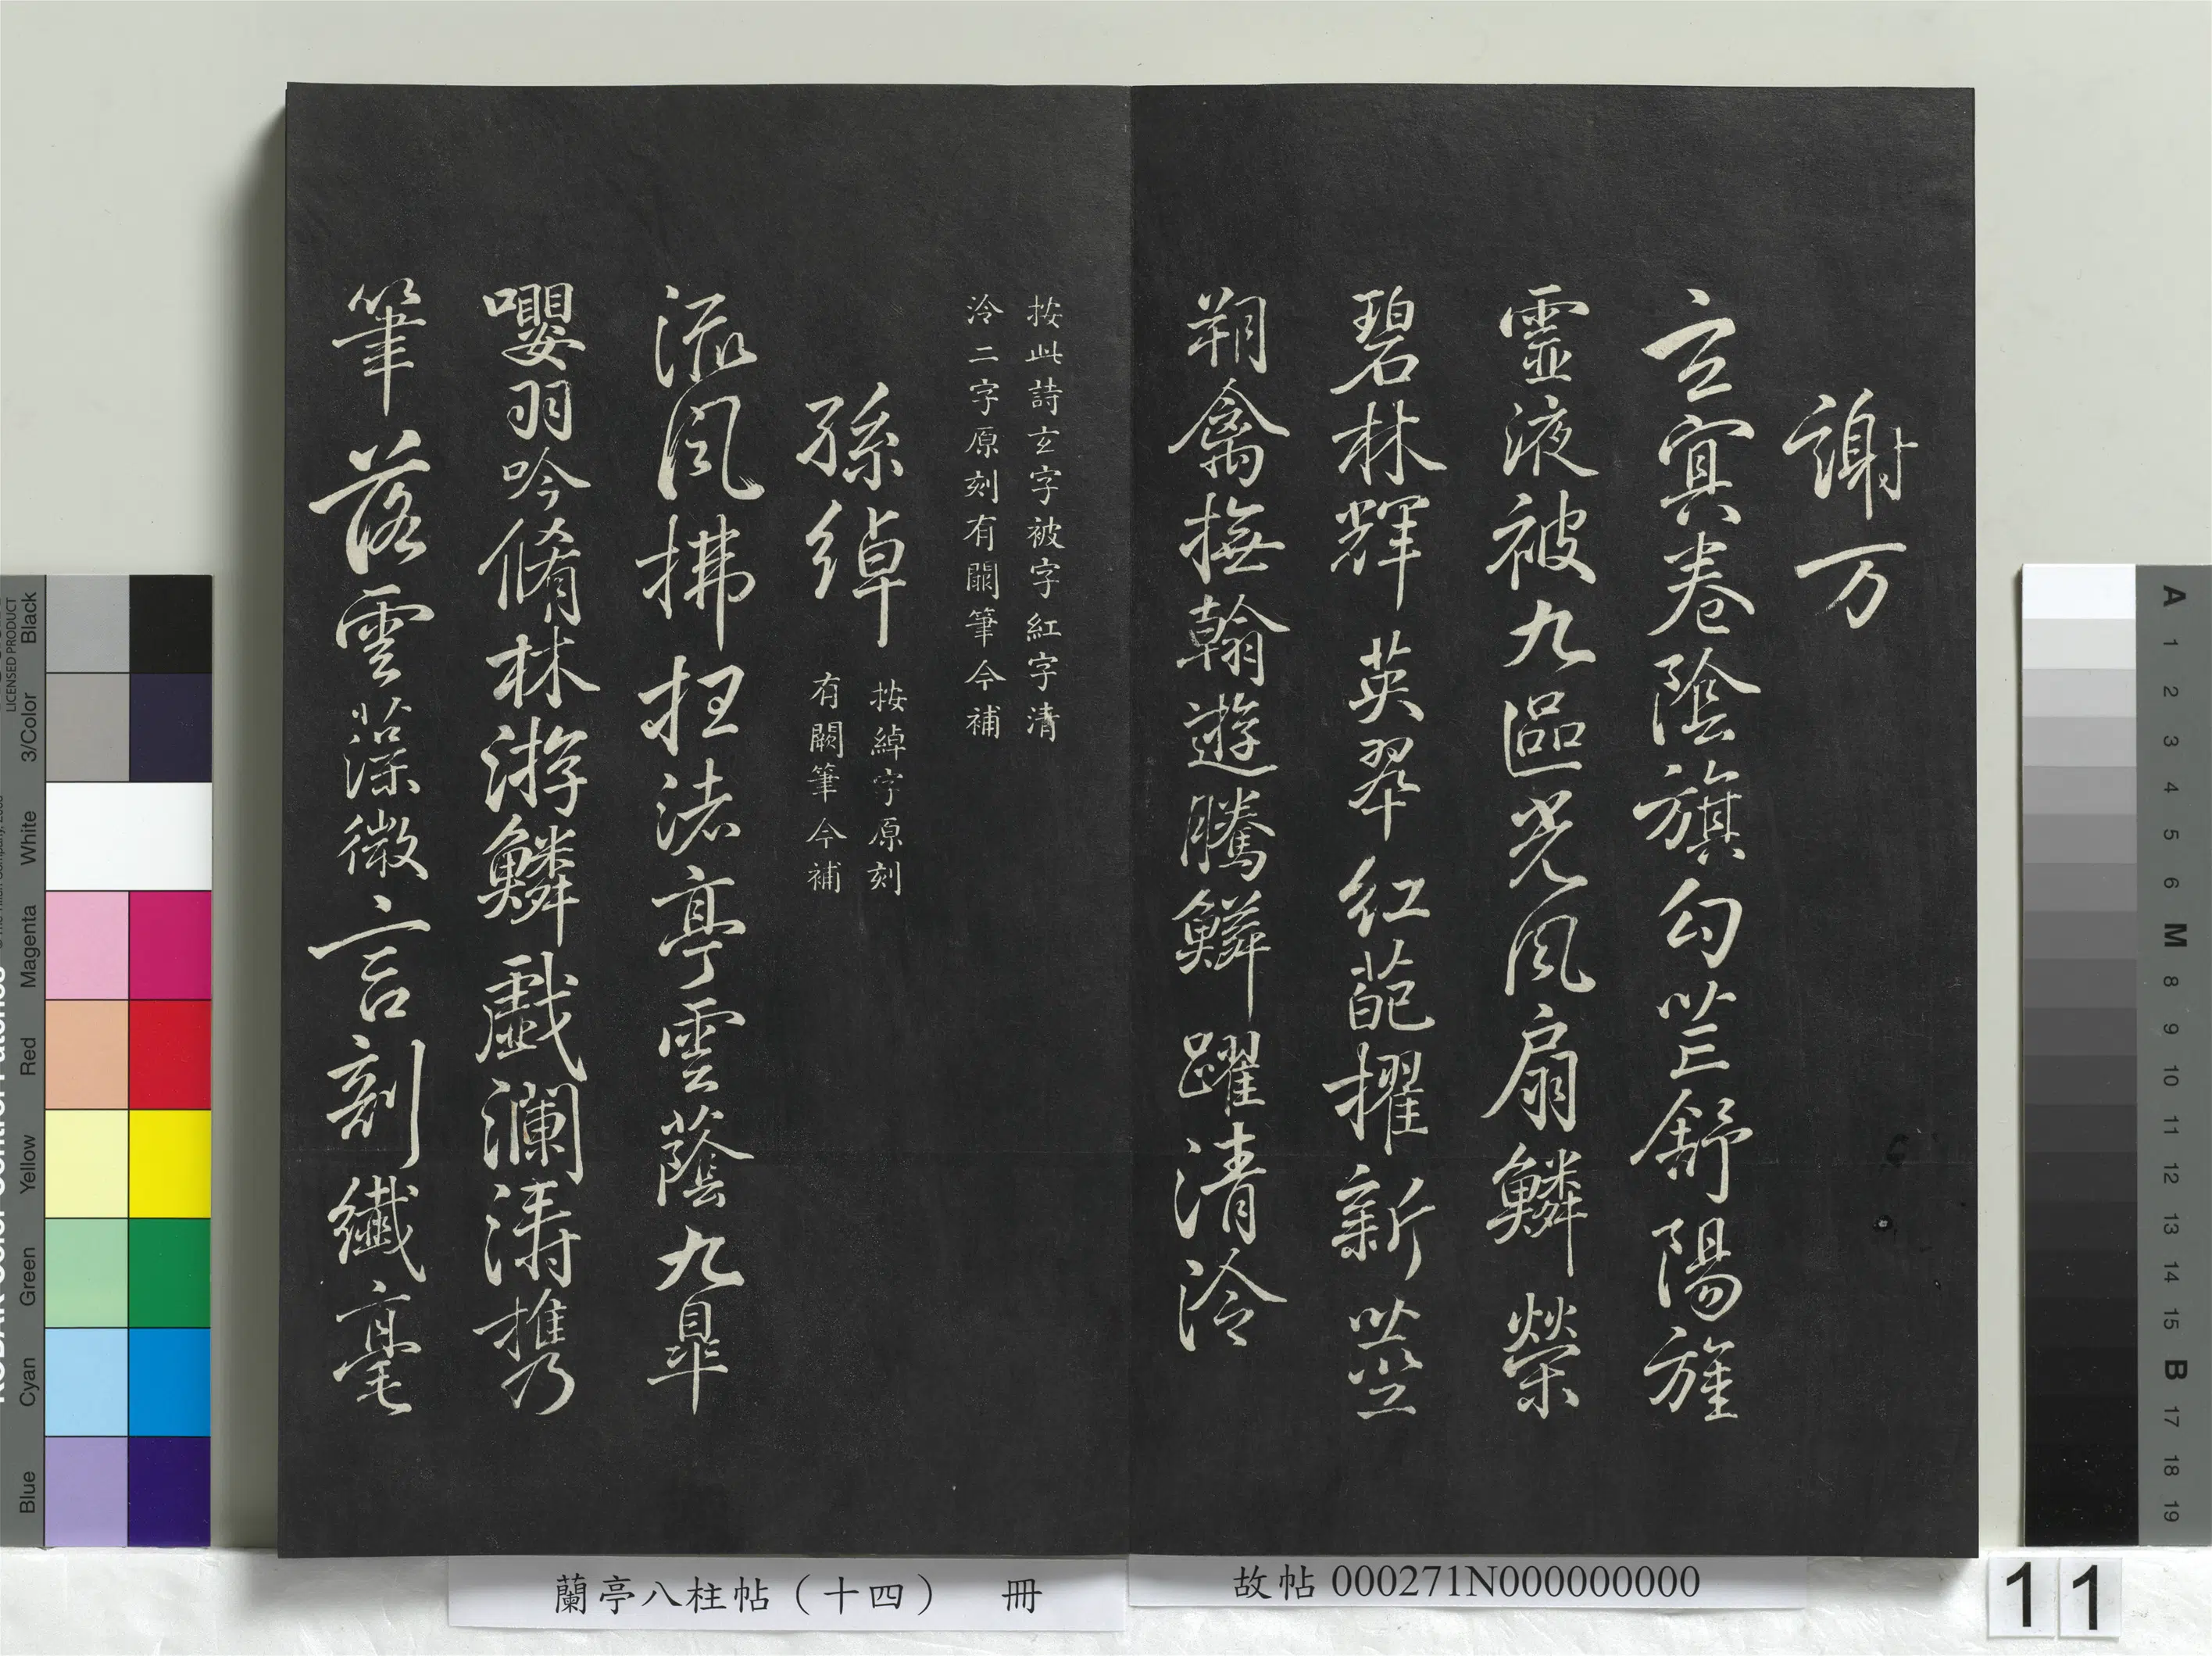 謝万
玄冥卷陰旗勾芒舒陽旌
靈液被九區光風扇鱗榮
碧林輝英翠紅葩擢新莖
翔禽撫翰遊騰鱗躍清泠
按此詩玄字被字紅字清
泠二字原刻有闕筆今補
孫綽
按綽字原刻
有闕筆今補
流風拂枉渚亭雲蔭九皋
嚶羽吟脩林游鱗戲瀾濤攜
筆落雲藻微言剖纖毫
蘭亭八柱帖（十四） 冊
故帖 000271N000000000
11
LICENSED PRODUCT
Black
3/Color
White
Magenta
Red
Yellow
Green
Cyan
Blue
A
1
2
3
4
5
6
M
8
9
10
11
12
13
14
15
B
17
18
19